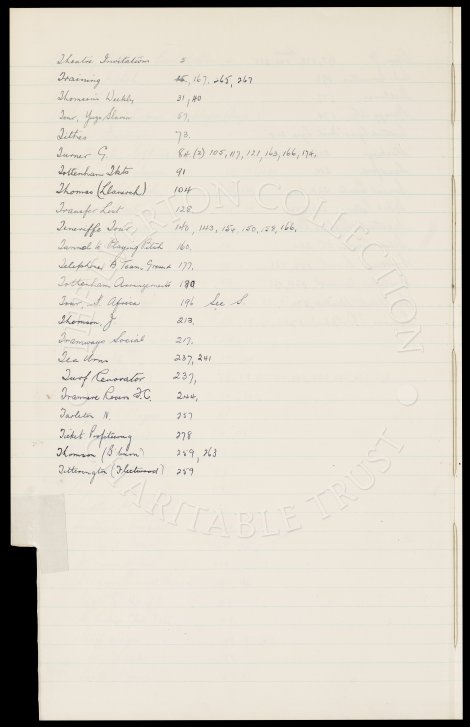 Theatre Invitations 5
Training 15, 167, 265, 267
Thomson's Weekly 31, 40
Tour, Yugo Slavia 57,
Tithes 73.
Turner G. 84 (2) 105, 117, 121, 163, 166, 174,
Tottenham Tkts 91
Thomas (Llanerch) 104
Transfer List 128
Teneriffe Tour, 140, 143, 154, 150, 158, 166.
Tunnel to Playing Pitch 160.
Telephones, B Team, Ground 177,
Tottenham Arrangements 180
Tour, S. Africa 196 See S.
Thomson, J. 213,
Tramways Social 217.
Tea Urns 237, 241
Turf Renovator 237,
Tranmere Rovers F.C. 244,
Tarleton N. 257
Ticket Profiteering 278
Thomson (B'burn) 259, 263
Titterington (Fleetwood) 259
THE EVERTON COLLECTION
CHARITABLE TRUST